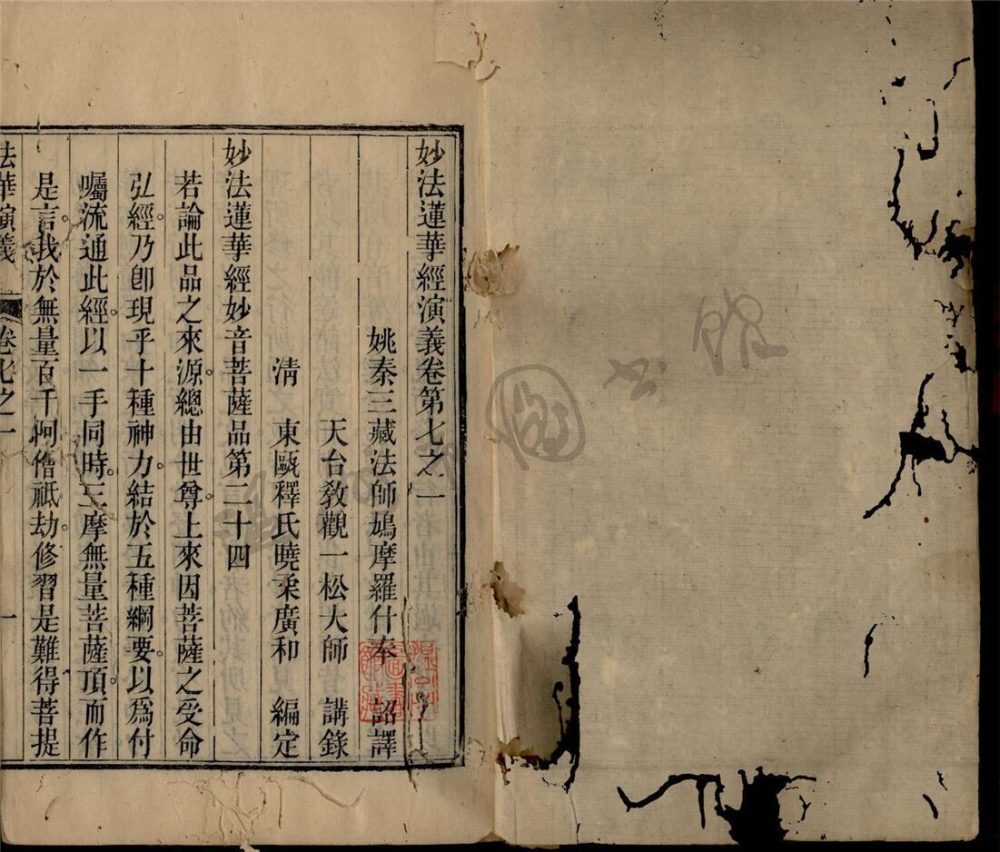 妙法蓮華經演義卷第七之一
姚秦三藏法師鳩摩羅什奉　詔譯
天台敎觀一松大師　講錄
清　東甌釋氏曉柔廣和　編定
妙法蓮華經妙音菩薩品第二十四
若論此品之來源總由世尊上來因菩薩之受命
弘經乃卽現乎十種神力結於五種綱要以爲付
囑流通此經以一手同時三摩無量菩薩頂而作
是言我於無量百千阿僧祇劫修習是難得菩提
法華演義　卷七之一　一